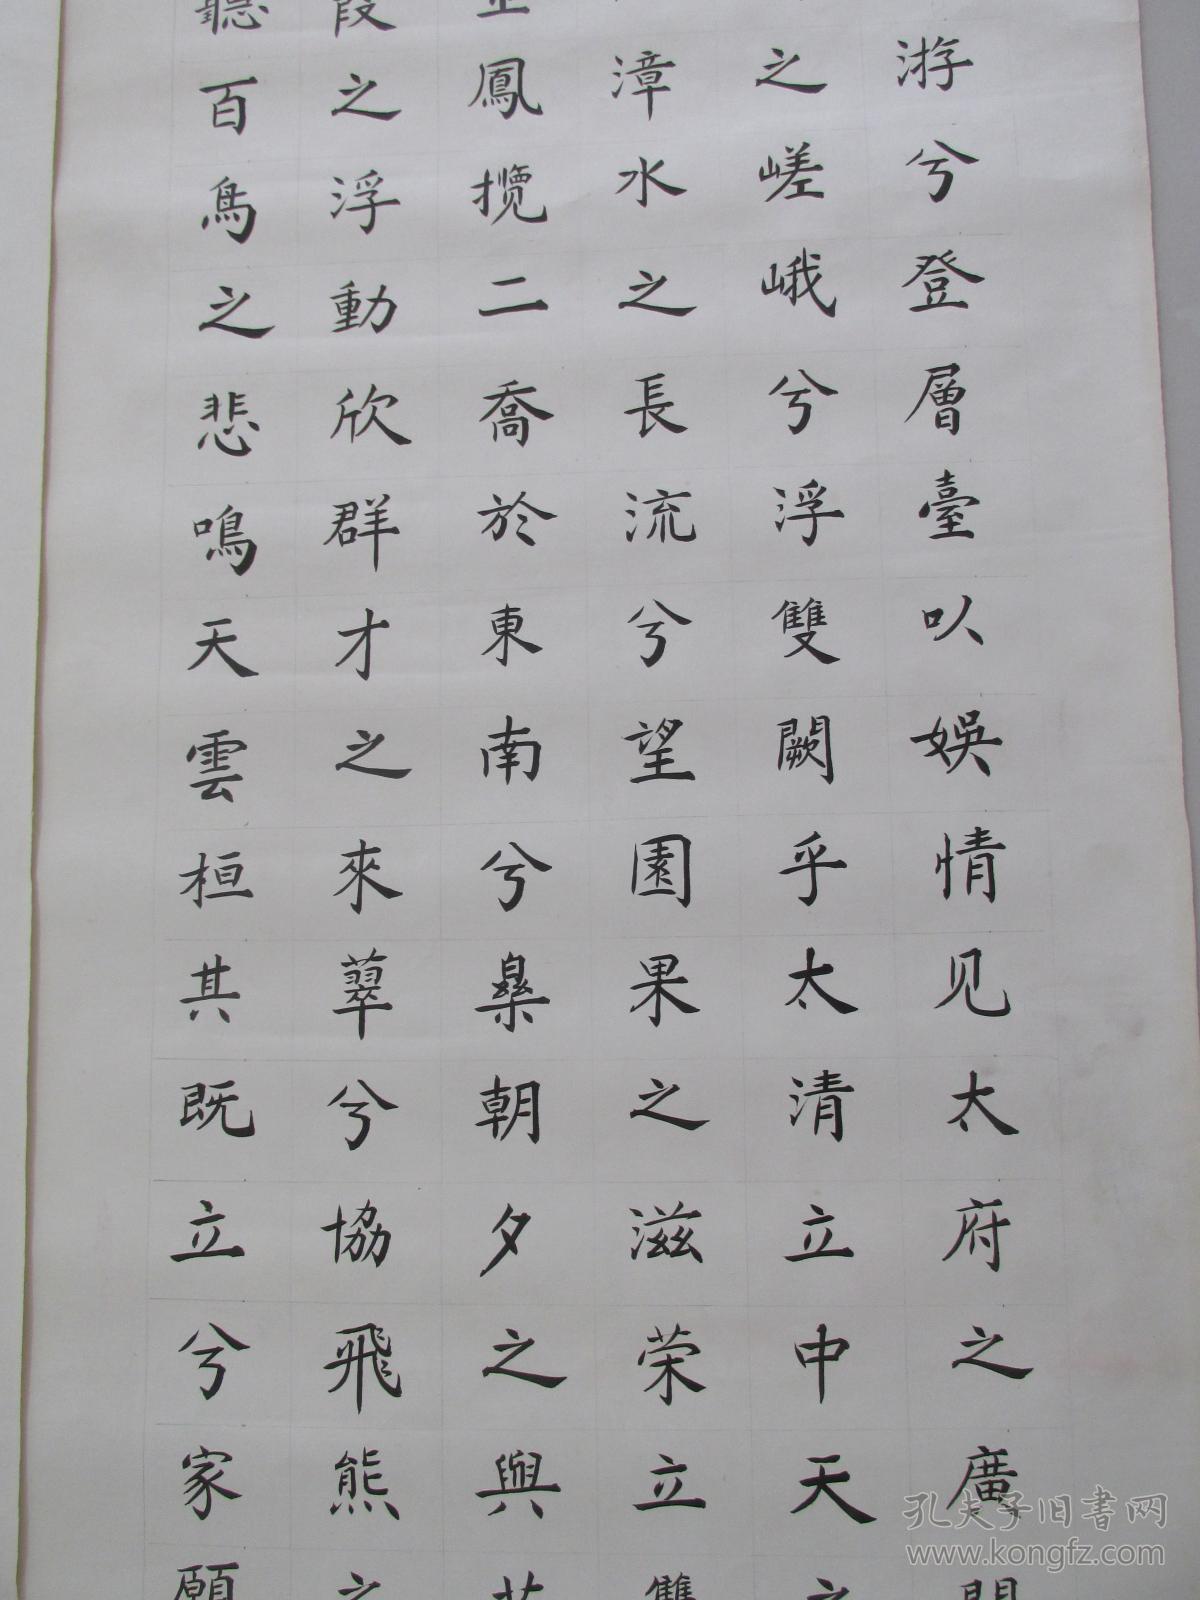 游兮登層臺以娛情见太府之廣
之嵯峨兮浮雙闕乎太清立中天之
漳水之長流兮望園果之滋荣立雙
鳳攬二喬於東南兮樂朝夕之與
之浮動欣群才之來萃兮協飛熊之
聽百鳥之悲鳴天雲桓其既立兮家願
孔夫子旧书网
www.kongfz.com